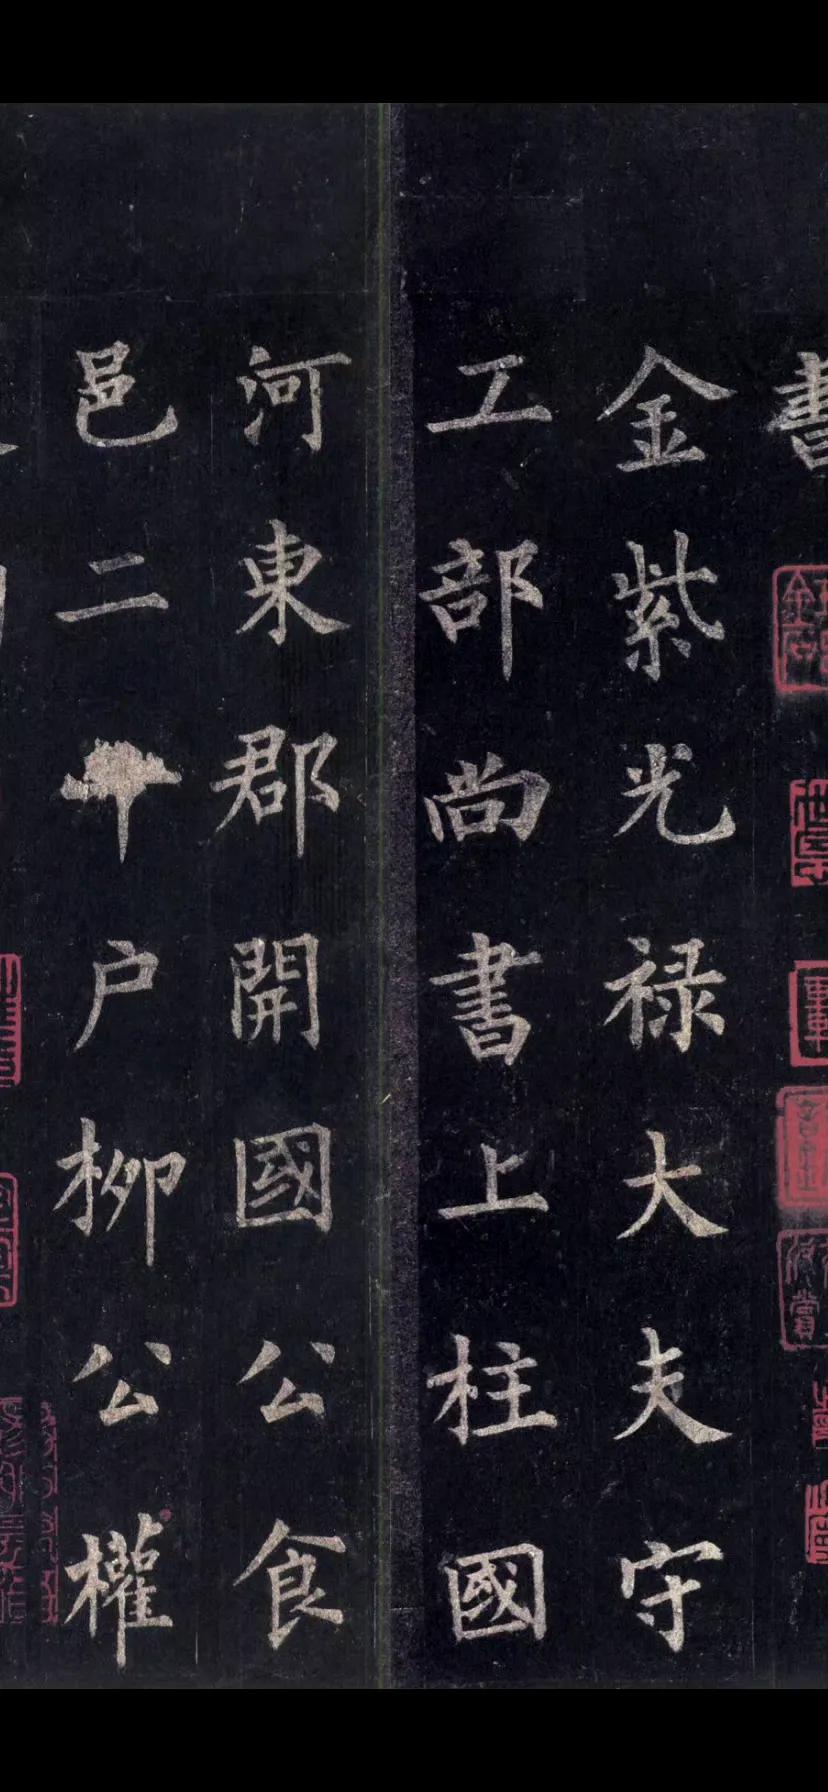 書
金紫光禄大夫守
工部尚書上柱國
河東郡開國公食
邑二千户柳公權